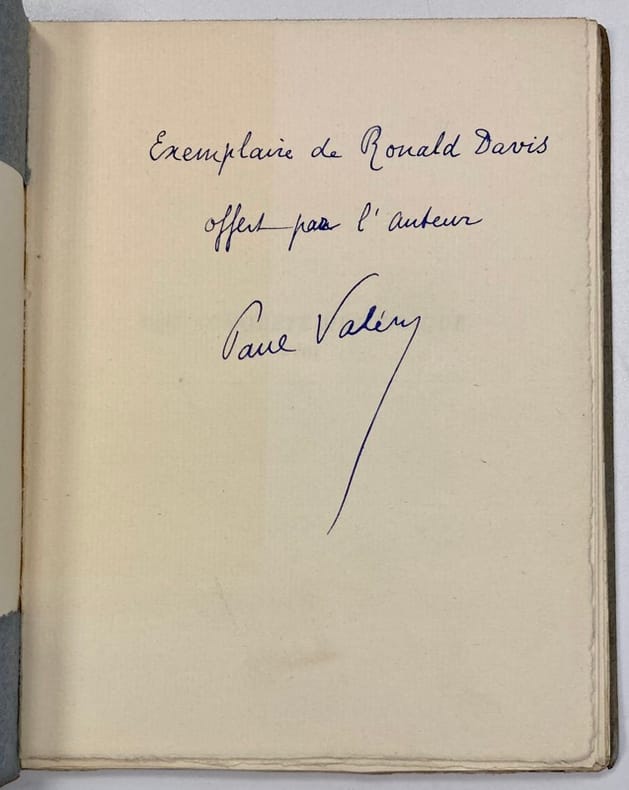 Exemplaire de Ronald Davis
offert par l'auteur
Paul Valéry